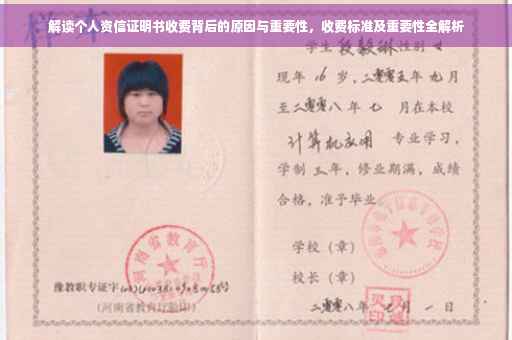 解读个人资信证明书收费背后的原因与重要性，收费标准及重要性全解析
学生段毅琳性别女
现年16岁，二零零五年九月
至二零零八年七月在本校
计算机应用 专业学习，
学制三年，修业期满，成绩
合格，准予毕业
学校（章）
校长（章）
二零零八年七月一日
河南省教育厅
豫教职专证字
(河南省教育厅验印)